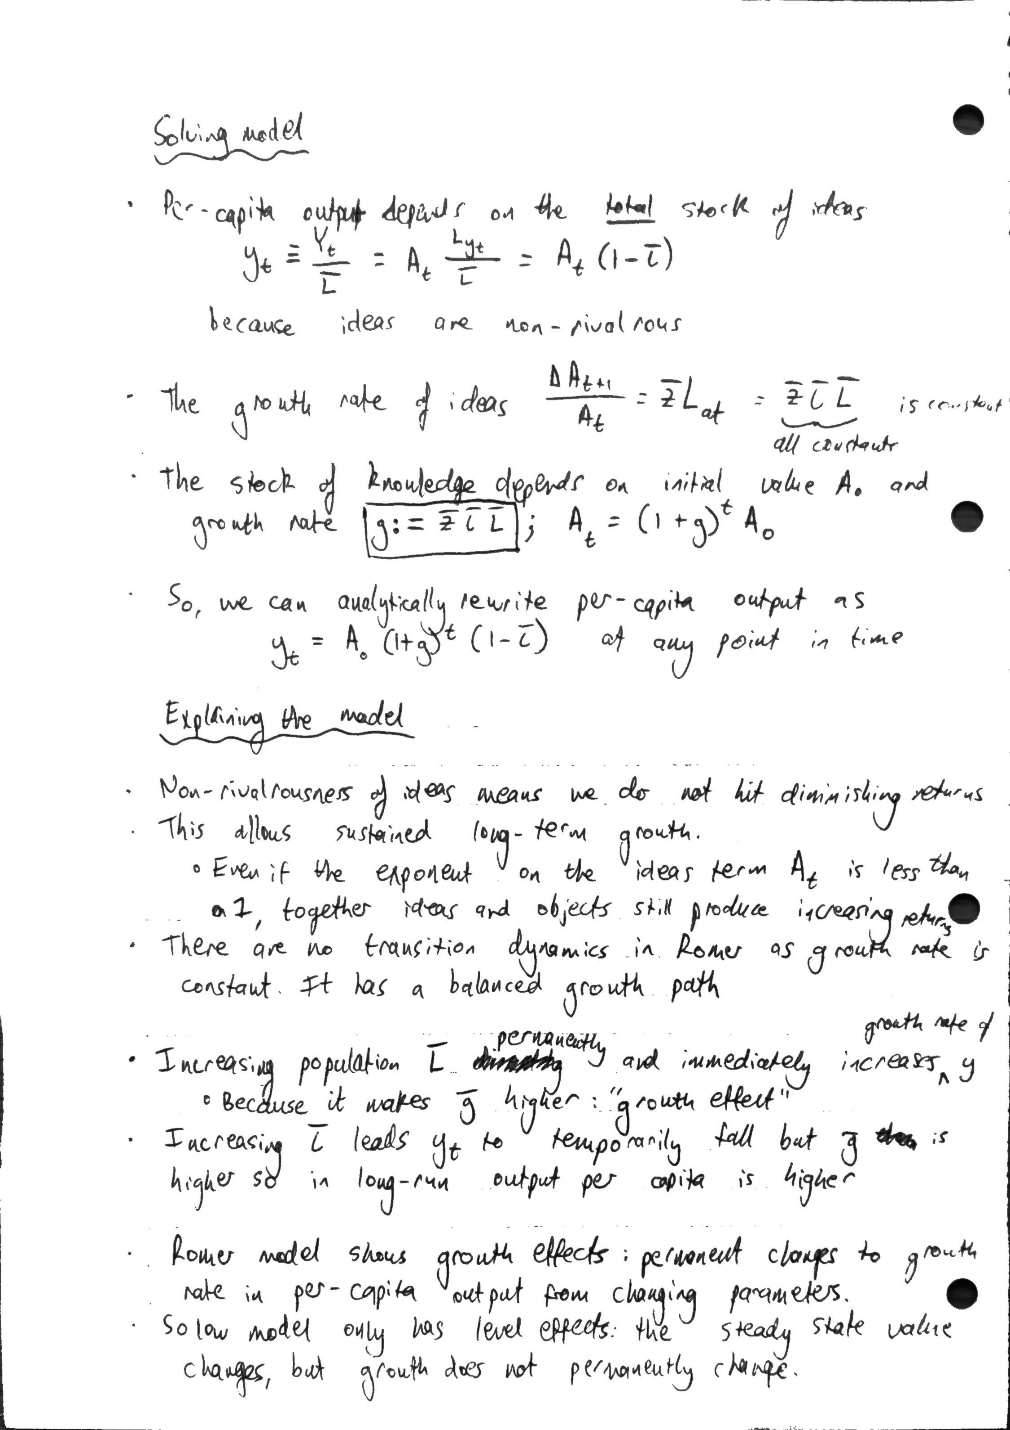 Solving model
· Per-capita output depends on the total stock of ideas
y_t ≡ Y_t / L̄ = A_t L_yt / L̄ = A_t (1-l̄)
because ideas are non-rivalrous
· The growth rate of ideas ΔA_t+1 / A_t = z̄ L_at = z̄ l̄ L̄ is constant
all constants
· The stock of knowledge depends on initial value A₀ and
growth rate g := z̄ l̄ L̄ ; A_t = (1+g)^t A₀
· So, we can analytically rewrite per-capita output as
y_t = A₀ (1+g)^t (1-l̄) at any point in time
Explaining the model
· Non-rivalrousness of ideas means we do not hit diminishing returns
· This allows sustained long-term growth.
∘ Even if the exponent on the ideas term A_t is less than
1, together ideas and objects still produce increasing returns
· There are no transition dynamics in Romer as growth rate is
constant. It has a balanced growth path
· Increasing population L̄ permanently and immediately increases growth rate of y
∘ Because it makes ḡ higher: "growth effect"
· Increasing l̄ leads y_t to temporarily fall but ḡ is
higher so in long-run output per capita is higher
· Romer model shows growth effects: permanent changes to growth
rate in per-capita output from changing parameters.
· Solow model only has level effects: the steady state value
changes, but growth does not permanently change.